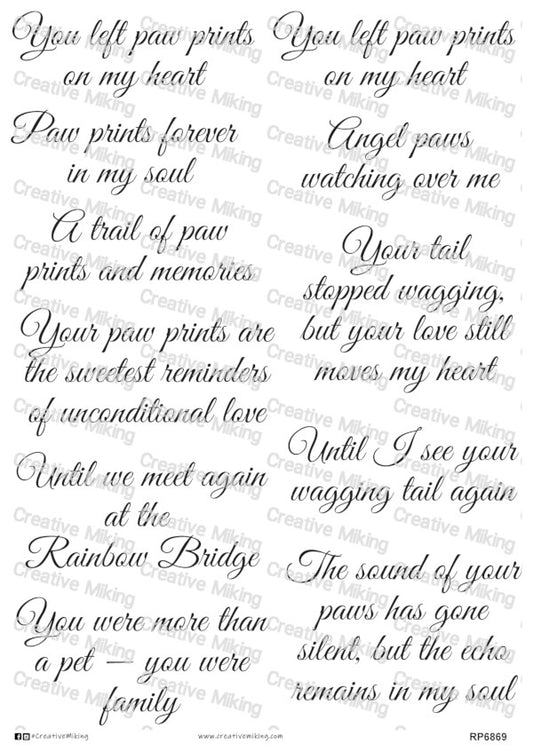 You left paw prints
on my heart
Paw prints forever
in my soul
A trail of paw
prints and memories
Your paw prints are
the sweetest reminders
of unconditional love
Until we meet again
at the
Rainbow Bridge
You were more than
a pet — you were
family
You left paw prints
on my heart
Angel paws
watching over me
Your tail
stopped wagging,
but your love still
moves my heart
Until I see your
wagging tail again
The sound of your
paws has gone
silent, but the echo
remains in my soul
Creative Miking
#CreativeMiking
www.creativemiking.com
RP6869